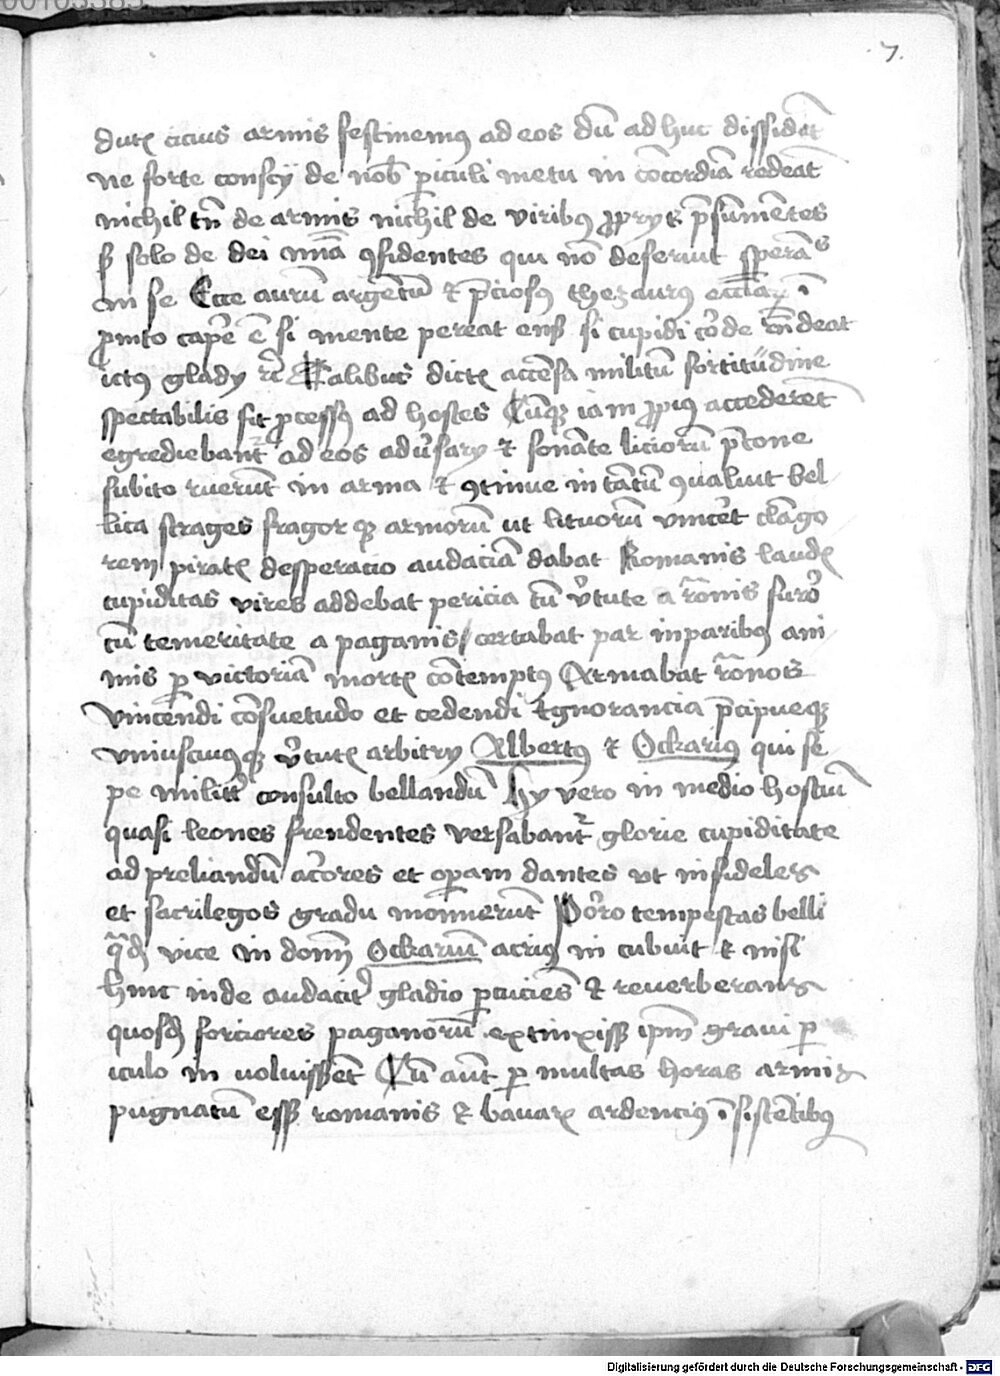 00103383
7.
dutꝫ cicius armis festinemꝰ ad eos dū ad huc dissidēt
ne forte conscij de nob̄ ꝑiculi metu in cōcordiā redeāt
nichil tn̄ de armis nichil de viribꝰ ꝓprijs p̄sumētes
sꝫ solo de dei mīa ꝯfidentes qui nō deserūt sperātes
in se Ecce aurū argētū ⁊ p̄ciosꝰ thezaurꝰ ecclīaꝝ ī
ꝓmto caꝑe ē si mente pereat ensꝭ si cupidi
ictꝰ gladij rc̄ Talibus dictꝭ accēsa militū fortitudine
spectabilis fit ꝓcessꝰ ad hostes Cūqꝫ iam ꝓpiꝰ accederēt
egrediebant᷑ ad eos adūsarij ⁊ sonāte liciorū p̄cone
subito ruerūt in arma ⁊ ꝯtinue in tātū ꝯualuit bel
lica strages fragor qꝫ armorū ut lituorū vincēt clāgo
rem piratꝭ desperacio audaciā dabat Romanis laudꝭ
cupiditas vires addebat pericia cū v̄tute a rōnis furō
cū temeritate a paganis / certabat par inparibꝰ ani
mis ꝑ victoriā mortꝭ cōtemptꝰ Armabat rōnos
vincendi cōsuetudo et cedendi Ignorancia p̄cipueqꝫ
vniuscuiusqꝫ v̄tutꝭ arbitrij Albertꝰ ⁊ Ockariꝰ qui se
pe consulto bellandū hij vero in medio hostiū
quasi leones frendentes versabant᷑ glorie cupiditate
ad preliandū ac̄ores et oꝑam dantes vt infideles
et sacrilegos gradu mouerūt Porro tempestas belli
q̄dꝫ vice in domī Ockariū acriꝰ in cubuit ⁊ nisi
hinc inde audacit᷑ gladio ꝑcuciēs ⁊ reverberans
quosdꝫ forciores paganorū extinxissꝫ ipm̄ graui ꝑ
iculo in uoluissꝫet Cū aūt ꝑ multas horas armis
pugnatū essꝫ romanis ⁊ bauarꝭ ardenciꝰ īsistētibꝰ
Digitalisierung gefördert durch die Deutsche Forschungsgemeinschaft - DFG